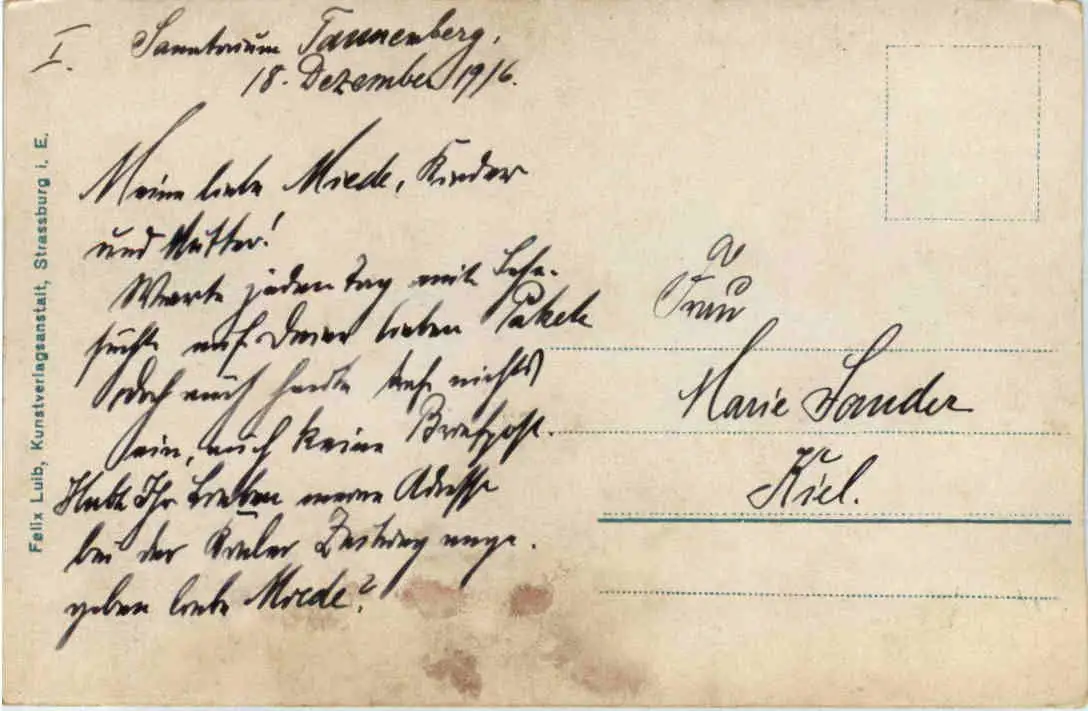 I.
Sanatorium Tannenberg,
18. Dezember 1916.
Meine liebe Miede, Kinder
und Mutter!
Warte jeden Tag mit Sehn-
sucht auf Deine lieben Pakete
doch auch heute traf nichts
ein, auch keine Briefpost.
Habt Ihr Lieben meine Adresse
bei der Kieler Zeitung ange-
geben liebe Miede?
Frau
Marie Sander
Kiel.
Felix Luib, Kunstverlagsanstalt, Strassburg i. E.